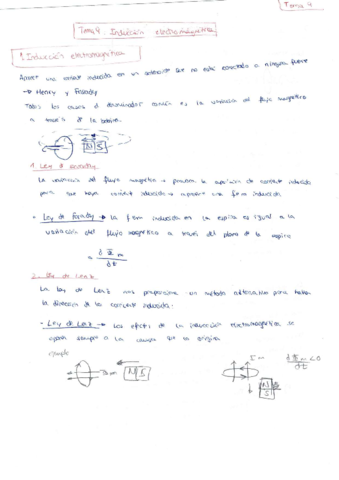 Tema 4
Tema 4. Inducción electromagnética
1. Inducción electromagnética
Aparece una corriente inducida en un que no está conectado a ninguna fuente
→ Henry y Faraday
Todos los casos el denominador común es la variación del flujo magnético
a través de la bobina.
N S
1. Ley de Faraday
La variación del flujo magnético → provoca la aparición de corriente inducida
para que haya corriente inducida → aparece una fem inducida
• Ley de Faraday → La fem inducida en la espira es igual a la
variación del flujo magnético a través del plano de la espira
= dΦm/dt
2. Ley de Lenz
La ley de Lenz nos proporciona un método alternativo para hallar
la dirección de la corriente inducida.
• Ley de Lenz → Los efectos de la inducción electromagnética se
oponen siempre a la causa que la origina
ejemplo
N S
N S
dΦm/dt < 0